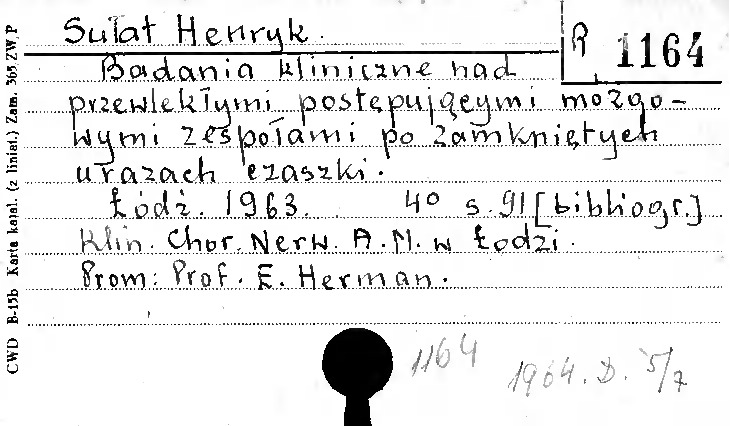 Sułat Henryk.
R 1164
Badania kliniczne nad
przewlekłymi postępującymi mózgo-
wymi zespołami po zamkniętych
urazach czaszki.
Łódź. 1963. 4° s. 91 [bibliogr.]
Klin. Chor. Nerw. A.M. w Łodzi.
Prom: Prof. E. Herman.
1164
1964. D. 5/7
CWD B-15b Karta katal. (z liniat.) Zam. 365 ZW. P